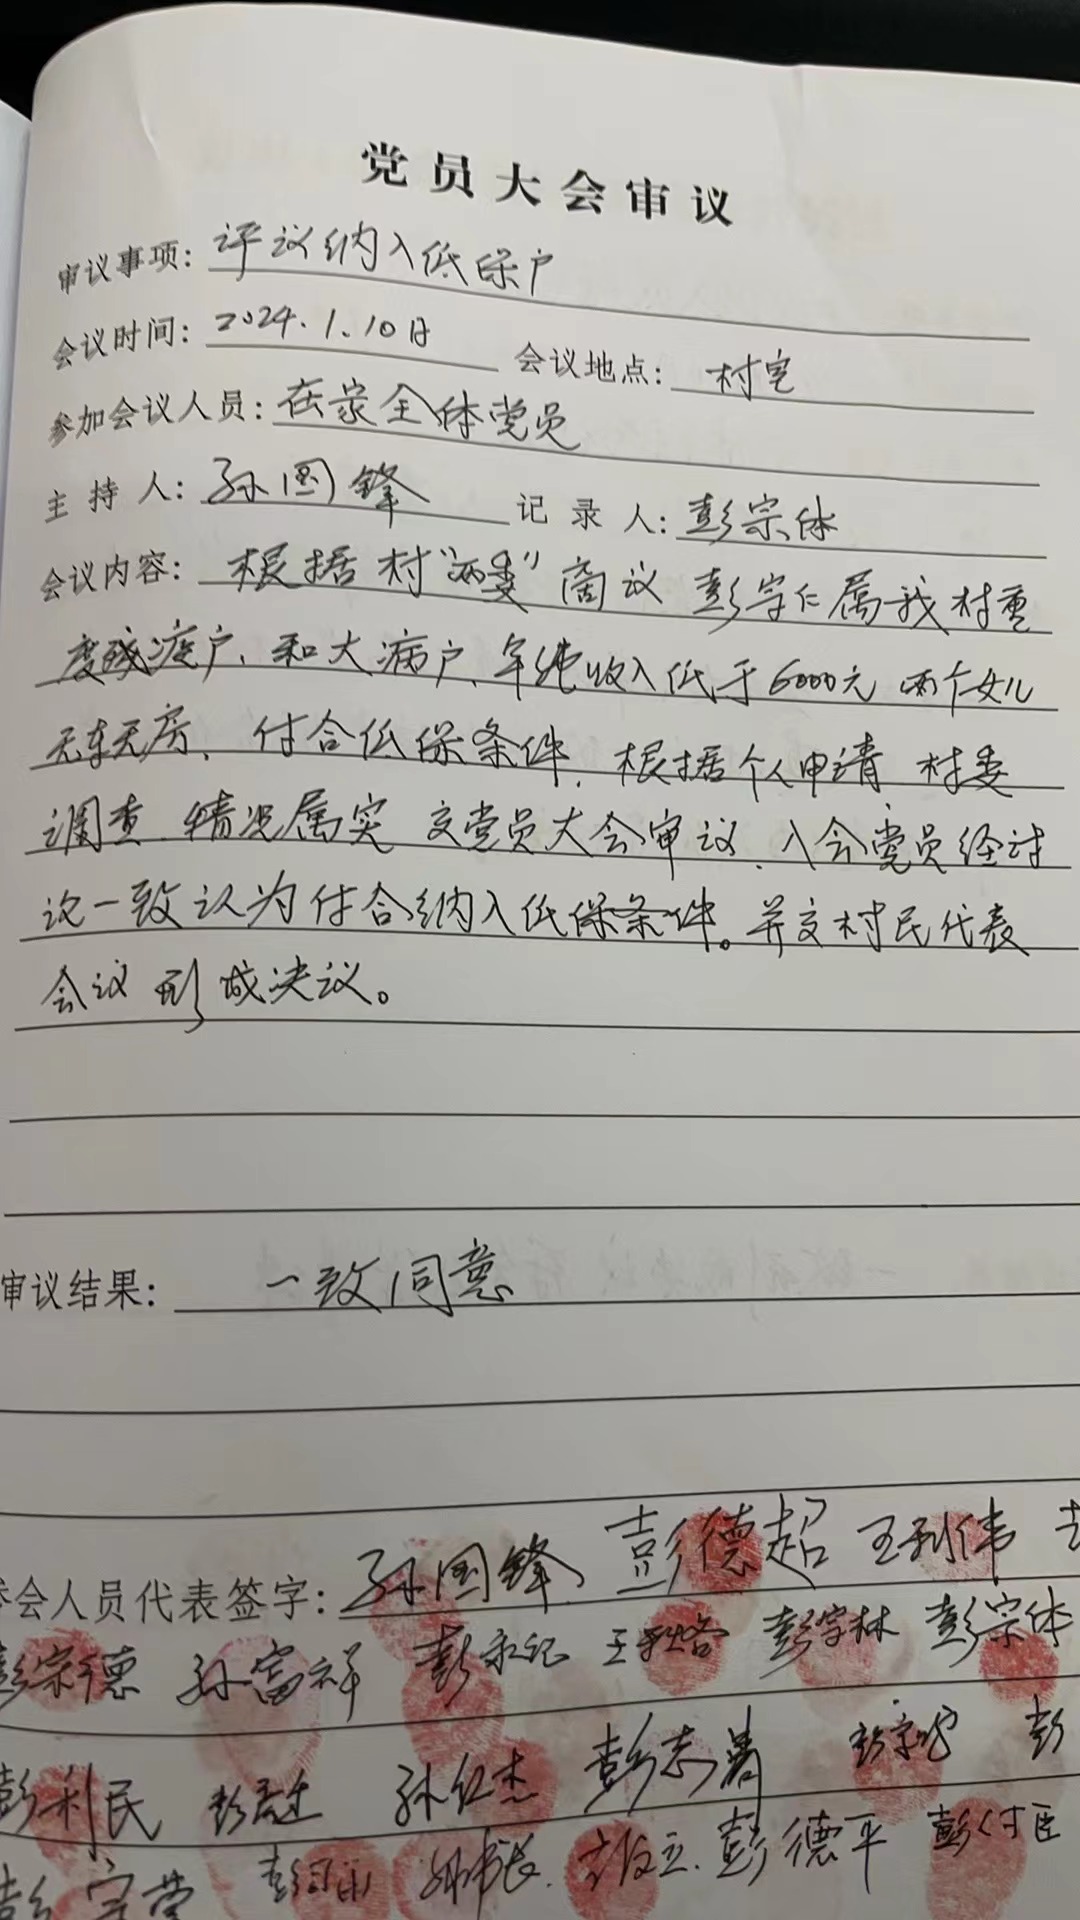 党员大会审议
审议事项: 评议纳入低保户
会议时间: 2024.1.10日 会议地点: 村室
参加会议人员: 在家全体党员
主持人: 孙国锋 记录人: 彭宗体
会议内容: 根据村“两委”商议 彭字仁属我村重
度残疾户、和大病户、年纯收入低于6000元 两个女儿
无车无房、付合低保条件, 根据个人申请 村委
调查、情况属实 交党员大会审议、入会党员经讨
论一致认为付合纳入低保条件。并交村民代表
会议 形成决议。
审议结果: 一致同意
会人员代表签字: 孙国锋 彭德超 王利伟
彭宗德 孙富祥 彭永记 彭字林 彭宗体
彭利民 孙红杰 彭志 彭
彭字营 彭德平 彭付臣